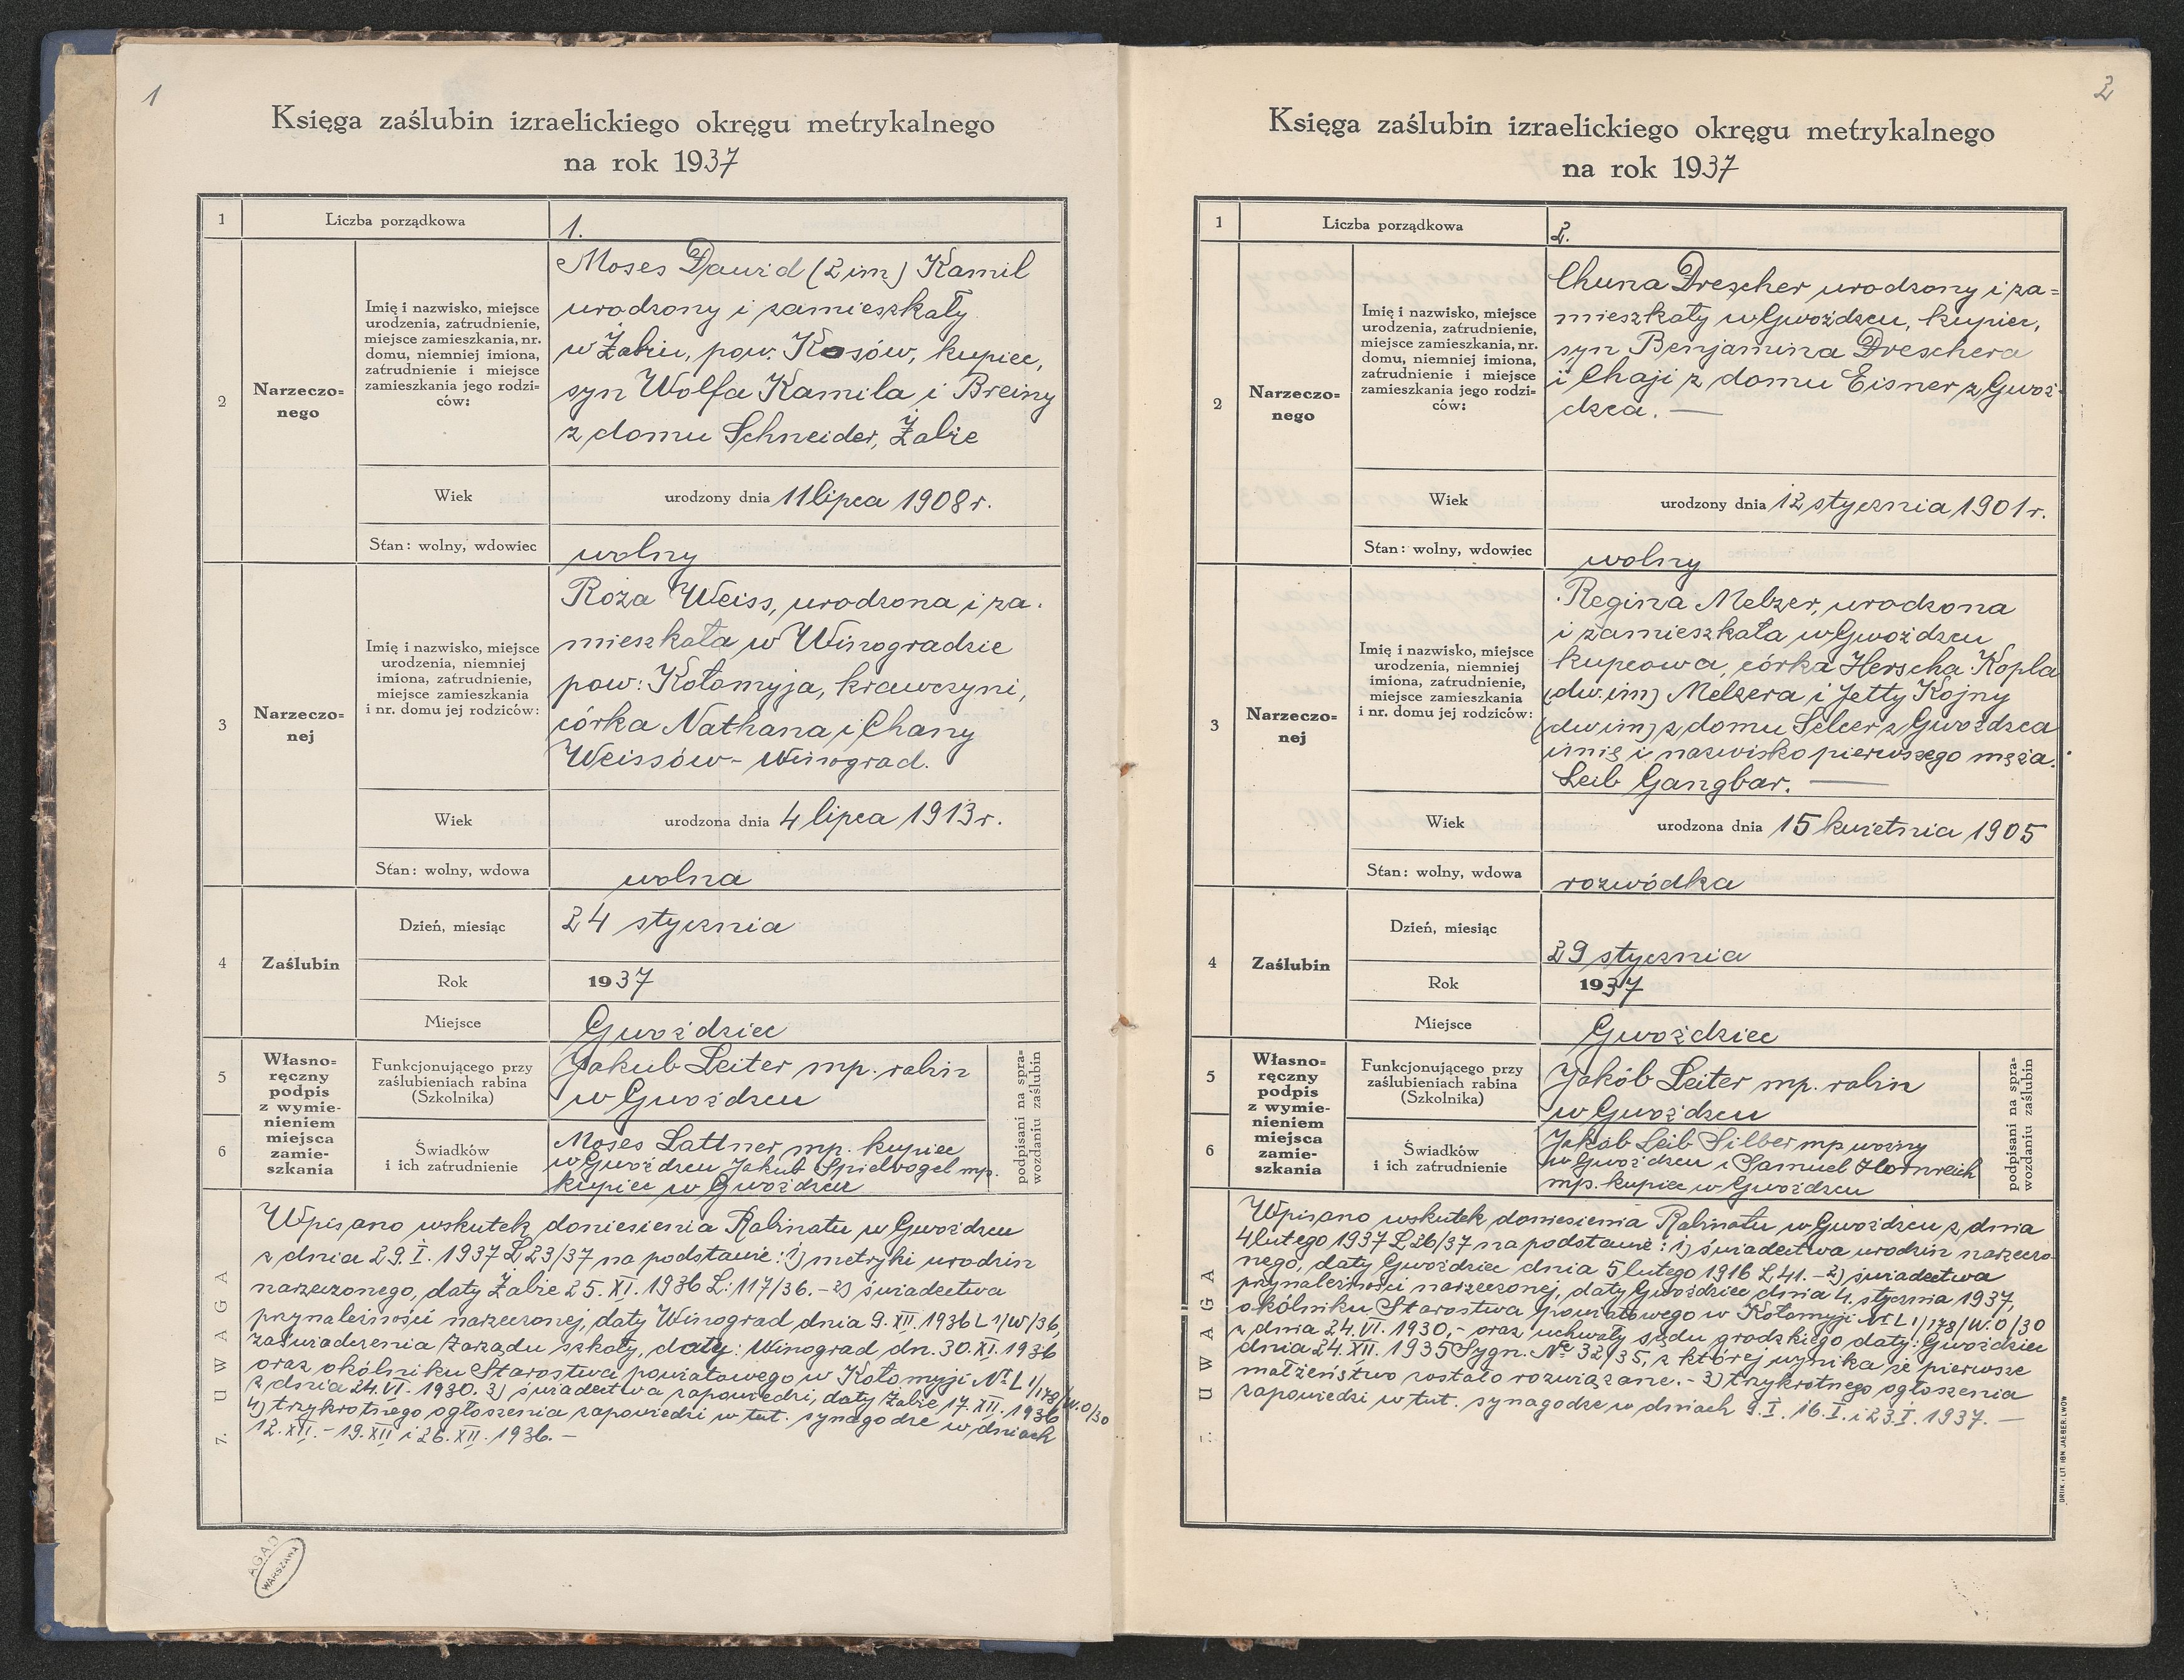 1
Księga zaślubin izraelickiego okręgu metrykalnego
na rok 1937
1
Liczba porządkowa
1.
2
Narzeczo=
nego
Imię i nazwisko, miejsce
urodzenia, zatrudnienie,
miejsce zamieszkania, nr.
domu, niemniej imiona,
zatrudnienie i miejsce
zamieszkania jego rodzi=
ców:
Moses Dawid (2 im) Kamil
urodzony i zamieszkały
w Żabiu, pow. Kosów, kupiec,
syn Wolfa Kamila i Breiny
z domu Schneider, Żabie
Wiek
urodzony dnia 11 lipca 1908 r.
Stan: wolny, wdowiec
wolny
3
Narzeczo=
nej
Imię i nazwisko, miejsce
urodzenia, niemniej
imiona, zatrudnienie,
miejsce zamieszkania
i nr. domu jej rodziców:
Roza Weiss, urodzona i za-
mieszkała w Winogradzie
pow: Kołomyja, krawczyni,
córka Nathana i Chany
Weissów - Winograd.
Wiek
urodzona dnia 4 lipca 1913 r.
Stan: wolny, wdowa
wolna
4
Zaślubin
Dzień, miesiąc
24 stycznia
Rok
1937
Miejsce
Gwoździec
5
6
Własno=
ręczny
podpis
z wymie=
nieniem
miejsca
zamie=
szkania
Funkcjonującego przy
zaślubieniach rabina
(Szkolnika)
Jakub Leiter mp. rabin
w Gwoźdzcu
Świadków
i ich zatrudnienie
Moses Lattner mp. kupiec
w Gwoźdzcu Jakub Spielvogel mp.
kupiec w Gwoźdzcu
podpisani na spra=
wozdaniu zaślubin
7. UWAGA
Wpisano wskutek doniesienia Rabinatu w Gwoźdzcu
z dnia 29. I. 1937 L 23/37 na podstawie: 1) metryki urodzin
narzeczonego, daty Żabie 25. XI. 1936 L: 117/36. - 2) świadectwa
przynależności narzeczonej, daty Winograd dnia 9. XII. 1936 L 1/W/36,
zaświadczenia Zarządu szkoły, daty: Winograd dn. 30. XI. 1936
oraz okólniku Starostwa powiatowego w Kołomyji Nr L 1/178/W.0/30
z dnia 24. VI. 1930. 3) świadectwa zapowiedzi, daty Żabie 17. XII. 1936
4) trzykrotnego ogłoszenia zapowiedzi w tut. synagodze w dniach
12. XII. - 19. XII i 26. XII. 1936. -
AGAD
WARSZAWA
2
Księga zaślubin izraelickiego okręgu metrykalnego
na rok 1937
1
Liczba porządkowa
2.
2
Narzeczo=
nego
Imię i nazwisko, miejsce
urodzenia, zatrudnienie,
miejsce zamieszkania, nr.
domu, niemniej imiona,
zatrudnienie i miejsce
zamieszkania jego rodzi=
ców:
Chuna Drescher urodzony i za=
mieszkały w Gwoźdzcu, kupiec,
syn Benjamina Dreschera
i Chaji z domu Eisner z Gwoź-
dzca. —
Wiek
urodzony dnia 12 stycznia 1901 r.
Stan: wolny, wdowiec
wolny
3
Narzeczo=
nej
Imię i nazwisko, miejsce
urodzenia, niemniej
imiona, zatrudnienie,
miejsce zamieszkania
i nr. domu jej rodziców:
Regina Melzer, urodzona
i zamieszkała w Gwoździcu
kupcowa, córka Herscha Kopla
(dw. im) Melzera i Jetty Kojny
(dw im) z domu Selcer z Gwoźdzca
imię i nazwisko pierwszego męża:
Leib Gangbar. —
Wiek
urodzona dnia 15 kwietnia 1905
Stan: wolny, wdowa
rozwódka
4
Zaślubin
Dzień, miesiąc
29 stycznia
Rok
1937
Miejsce
Gwoździec
5
6
Własno=
ręczny
podpis
z wymie=
nieniem
miejsca
zamie=
szkania
Funkcjonującego przy
zaślubieniach rabina
(Szkolnika)
Jakób Leiter mp. rabin
w Gwoźdzcu
Świadków
i ich zatrudnienie
Jakób Leib Silber mp woźny
w Gwoźdzcu i Samuel Hornreich
mp. kupiec w Gwoźdzcu
podpisani na spra=
wozdaniu zaślubin
7. UWAGA
Wpisano wskutek doniesienia Rabinatu w Gwoźdzcu z dnia
4 lutego 1937 L 26/37 na podstawie: 1) świadectwa urodzin narzeczo-
nego, daty Gwoździec dnia 5 lutego 1916 L 41. - 2) świadectwa
przynależności narzeczonej, daty Gwoździec dnia 4. stycznia 1937,
okólniku Starostwa powiatowego w Kołomyji Nr. L 1/178/W.0/30
z dnia 24. VI. 1930, - oraz uchwały sądu grodzkiego daty: Gwoździec
dnia 24. XII. 1935 Sygn. № 32/35, z której wynika że pierwsze
małżeństwo zostało rozwiązane. - 3) trzykrotnego ogłoszenia
zapowiedzi w tut. synagodze w dniach 9. I. 16. I. i 23. I. 1937. —
DRUK. i LIT. IGN. JAEGER. LWÓW